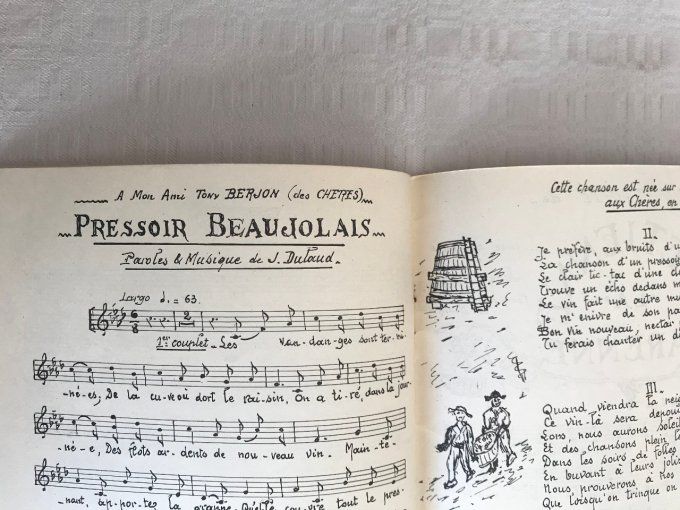 A Mon Ami Tony BERJON (des CHERES)
PRESSOIR BEAUJOLAIS
Paroles & Musique de J. Dutaud.
Largo = 63.
1er couplet_ Les van - dan - ges sont ter - mi -
- né - es; De la cu - ve où dort le rai - sin, On a ti - ré, dans la jour -
- né - e, Des flots ar - dents de nou - veau vin. Main - te -
- nant, ap - por - tez la Qu'el - le cou - vre tout le pres -
Cette chanson est née sur
aux Chères, en
II_
Je préfère, aux bruits d'u
La chanson d'un pressoi
Le clair tic - tac d'une d
Trouve un écho dedans m
Le vin fait une autre mu
Je m' enivre de son pa
Bon vin nouveau, nectar
Tu ferais chanter un di
III_
Quand viendra la neig
Ce vin-là sera dépoui
Lors, nous aurons soleil
Et des chansons plein l
Dans les jours de folles
En buvant à leurs jolis
Nous prouverons à nos
Que lorsqu'on trinque on